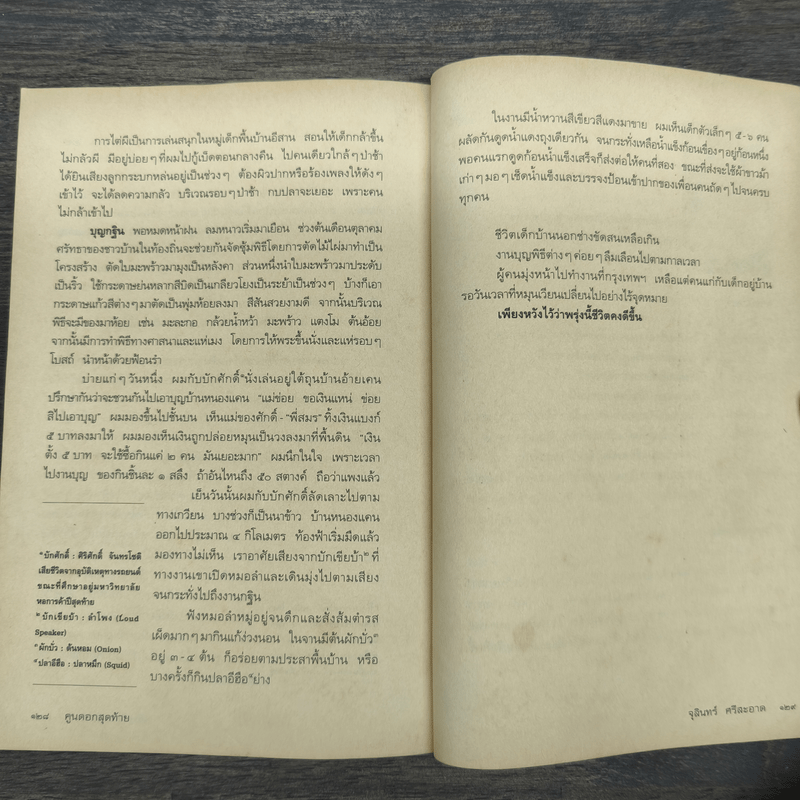 การไต่ผีเป็นการเล่นสนุกในหมู่เด็กพื้นบ้านอีสาน สอนให้เด็กกล้าขึ้น
ไม่กลัวผี มีอยู่บ่อยๆที่ผมไปกู้เบ็ดตอนกลางคืน ไปคนเดียวใกล้ๆป่าช้า
ได้ยินเสียงลูกกระบกหล่นอยู่เป็นช่วงๆ ต้องผิวปากหรือร้องเพลงให้ดัง
เข้าไว้ จะได้ลดความกลัว บริเวณรอบๆป่าช้า กบปลาจะเยอะ เพราะคน
ไม่กล้าเข้าไป
บุญกฐิน พอหมดหน้าฝน ลมหนาวเริ่มมาเยือน ช่วงต้นเดือนตุลาคม
ศรัทธาของชาวบ้านในท้องถิ่นจะช่วยกันจัดซุ้มพิธีโดยการตัดไม้ไผ่มาทำเป็น
โครงสร้าง ตัดใบมะพร้าวมามุงเป็นหลังคา ส่วนหนึ่งนำใบมะพร้าวมาประดับ
เป็นริ้ว ใช้กระดาษย่นหลากสีบิดเป็นเกลียวโยงเป็นระย้าเป็นช่วงๆ บ้างก็เอา
กระดาษแก้วสีต่างๆมาตัดเป็นพุ่มห้อยลงมา สีสันสวยงามดี จากนั้นบริเวณ
พิธีจะมีของมาห้อย เช่น มะละกอ กล้วยน้ำหว้า มะพร้าว แตงโม ต้นอ้อย
จากนั้นมีการทำพิธีทางศาสนาและแห่เมง โดยการให้พระขึ้นนั่งและแห่รอบๆ
โบสถ์ นำหน้าด้วยฟ้อนรำ
บ่ายแก่ๆวันหนึ่ง ผมกับบักศักดิ์°นั่งเล่นอยู่ใต้ถุนบ้านอ้ายเคน
ปรึกษากันว่าจะชวนกันไปเอาบุญบ้านหนองแคน "แม่ข่อย ขอเงินแหน่ ข่อย
สิไปเอาบุญ" ผมมองขึ้นไปชั้นบน เห็นแม่ของศักดิ์-"พี่สมร"ทิ้งเงินแบงก์
๕ บาทลงมาให้ ผมมองเห็นเงินถูกปล่อยหมุนเป็นวงลงมาที่พื้นดิน "เงิน
ตั้ง ๕ บาท จะใช้ซื้อกินแค่ ๒ คน มันเยอะมาก" ผมนึกในใจ เพราะเวลา
ไปงานบุญ ของกินชิ้นละ ๑ สลึง ถ้าอันไหนถึง ๕๐ สตางค์ ถือว่าแพงแล้ว
เย็นวันนั้นผมกับบักศักดิ์ลัดเลาะไปตาม
ทางเกวียน บางช่วงก็เป็นนาข้าว บ้านหนองแคน
ออกไปประมาณ ๔ กิโลเมตร ท้องฟ้าเริ่มมืดแล้ว
มองทางไม่เห็น เราอาศัยเสียงจากบักเขียบ้า๒ที่
ทางงานเขาเปิดหมอลำและเดินมุ่งไปตามเสียง
จนกระทั่งไปถึงงานกฐิน
ฟังหมอลำหมู่อยู่จนดึกและสั่งส้มตำรส
เผ็ดมากๆมากินแก้ง่วงนอน ในจานมีต้นผักบั่ว๓
อยู่ ๓-๔ ต้น ก็อร่อยตามประสาพื้นบ้าน หรือ
บางครั้งก็กินปลาอีฮือ๔ย่าง
°บักศักดิ์ : ศิริศักดิ์ จันทรโชติ
เสียชีวิตจากอุบัติเหตุทางรถยนต์
ขณะที่ศึกษาอยู่มหาวิทยาลัย
หอการค้าปีสุดท้าย
๒บักเขียบ้า : ลำโพง (Loud
Speaker)
๓ผักบั่ว : ต้นหอม (Onion)
๔ปลาอีฮือ : ปลาหมึก (Squid)
๑๒๘ คูนดอกสุดท้าย
ในงานมีน้ำหวานสีเขียวสีแดงมาขาย ผมเห็นเด็กตัวเล็กๆ ๕-๖ คน
ผลัดกันดูดน้ำแดงถุงเดียวกัน จนกระทั่งเหลือน้ำแข็งก้อนเขื่องๆอยู่ก้อนหนึ่ง
พอคนแรกดูดก้อนน้ำแข็งเสร็จก็ส่งต่อให้คนที่สอง ขณะที่ส่งจะใช้ผ้าขาวม้า
เก่าๆมอๆเช็ดน้ำแข็งและบรรจงป้อนเข้าปากของเพื่อนคนถัดๆไปจนครบ
ทุกคน
ชีวิตเด็กบ้านนอกช่างขัดสนเหลือเกิน
งานบุญพิธีต่างๆค่อยๆลืมเลือนไปตามกาลเวลา
ผู้คนมุ่งหน้าไปทำงานที่กรุงเทพฯ เหลือแต่คนแก่กับเด็กอยู่บ้าน
รอวันเวลาที่หมุนเวียนเปลี่ยนไปอย่างไร้จุดหมาย
เพียงหวังไว้ว่าพรุ่งนี้ชีวิตคงดีขึ้น
จุลินทร์ ศรีสะอาด ๑๒๙